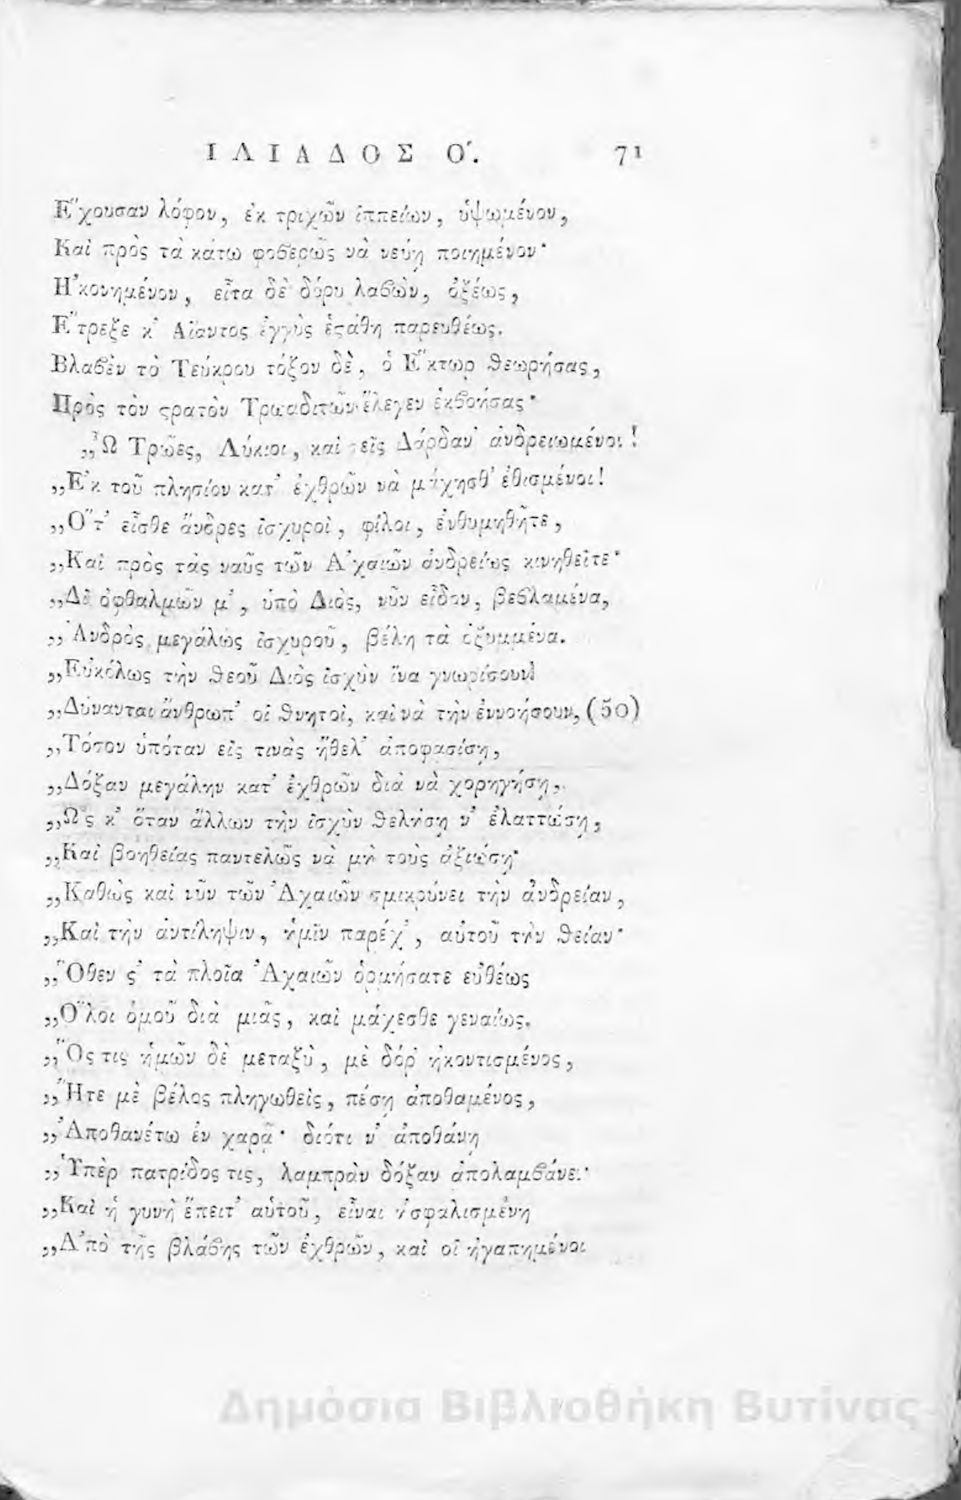 ΙΛΙΑΔΟΣ Ο΄. 71
Ε῎χουσαν λόφον, ἐκ τριχῶν ἱππείων, ὑψωμένον,
Καὶ πρὸς τὰ κάτω φοβερῶς νὰ νεύῃ ποιημένον·
Η᾿κονημένον, εἶτα δὲ δόρυ λαβὼν, ὀξέως,
Ε῎τρεξε κ᾿ Αἴαντος ἐγγὺς ἐϛάθη παρευθέως.
Βλαβὲν τὸ Τεύκρου τόξον δὲ, ὁ Ε῞κτωρ ϑεωρήσας,
Πρὸς τὸν ϛρατὸν Τρωαδιτῶν ἔλεγεν ἐκβοήσας·
„Ὦ Τρῶες, Λύκιοι, καὶ εἲς Δάρδαν᾿ ἀνδρειωμένοι!
„Ε᾿κ τοῦ πλησίον κατ᾿ ἐχθρῶν νὰ μάχησθ᾿ ἐθισμένοι!
„Ο῞τ᾿ εἶσθε ἄνδρες ἰσχυροὶ, φίλοι, ἐνθυμηθῆτε,
„Καὶ πρὸς τὰς ναῦς τῶν Α᾿χαιῶν ἀνδρείως κινηθεῖτε·
„Δἰ ὀφθαλμῶν μ᾿, ὑπὸ Διὸς, νῦν εἶδον, βεβλαμένα,
„Ἀνδρὸς μεγάλως ἰσχυροῦ, βέλη τὰ ὀξυμμένα.
„Εὐκόλως τὴν ϑεοῦ Διὸς ἰσχὺν ἵνα γνωρίσουν
„Δύνανται ἄνθρωπ᾿ οἱ ϑνητοὶ, καὶ νὰ τὴν ἐννοήσουν, (50)
„Τόσον ὁπόταν εἰς τινὰς ἤθελ᾿ ἀποφασίσῃ,
„Δόξαν μεγάλην κατ᾿ ἐχθρῶν διὰ νὰ χορηγήσῃ,
„Ω῾ς κ᾿ ὅταν ἄλλων τὴν ἰσχὺν ϑελήσῃ ν᾿ ἐλαττώσῃ,
„Καὶ βοηθείας παντελῶς νὰ μὴ τοὺς ἀξιώσῃ·
„Καθὼς καὶ νῦν τῶν Ἀχαιῶν σμικρύνει τὴν ἀνδρείαν,
„Καὶ τὴν ἀντίληψιν, ἡμῖν παρέχ᾿, αὑτοῦ τὴν ϑείαν·
„Ὅθεν ϛ᾿ τὰ πλοῖα Ἀχαιῶν ὁρμήσατε εὐθέως
„Ο῞λοι ὁμοῦ διὰ μιᾶς, καὶ μάχεσθε γεναίως.
„Ὅς τις ἡμῶν δὲ μεταξὺ, μὲ δόρ᾿ ἠκοντισμένος,
„Ἤτε μὲ βέλος πληγωθεὶς, πέσῃ ἀποθαμένος,
„Ἀποθανέτω ἐν χαρᾷ· διότι ν᾿ ἀποθάνῃ
„Ὑπὲρ πατρίδος τις, λαμπρὰν δόξαν ἀπολαμβάνει·
„Καὶ ἡ γυνὴ ἔπειτ᾿ αὑτοῦ, εἶναι ἠσφαλισμένη
„Α᾿πὸ τῆς βλάβης τῶν ἐχθρῶν, καὶ οἱ ἠγαπημένοι
Δημόσια Βιβλιοθήκη Βυτίνας